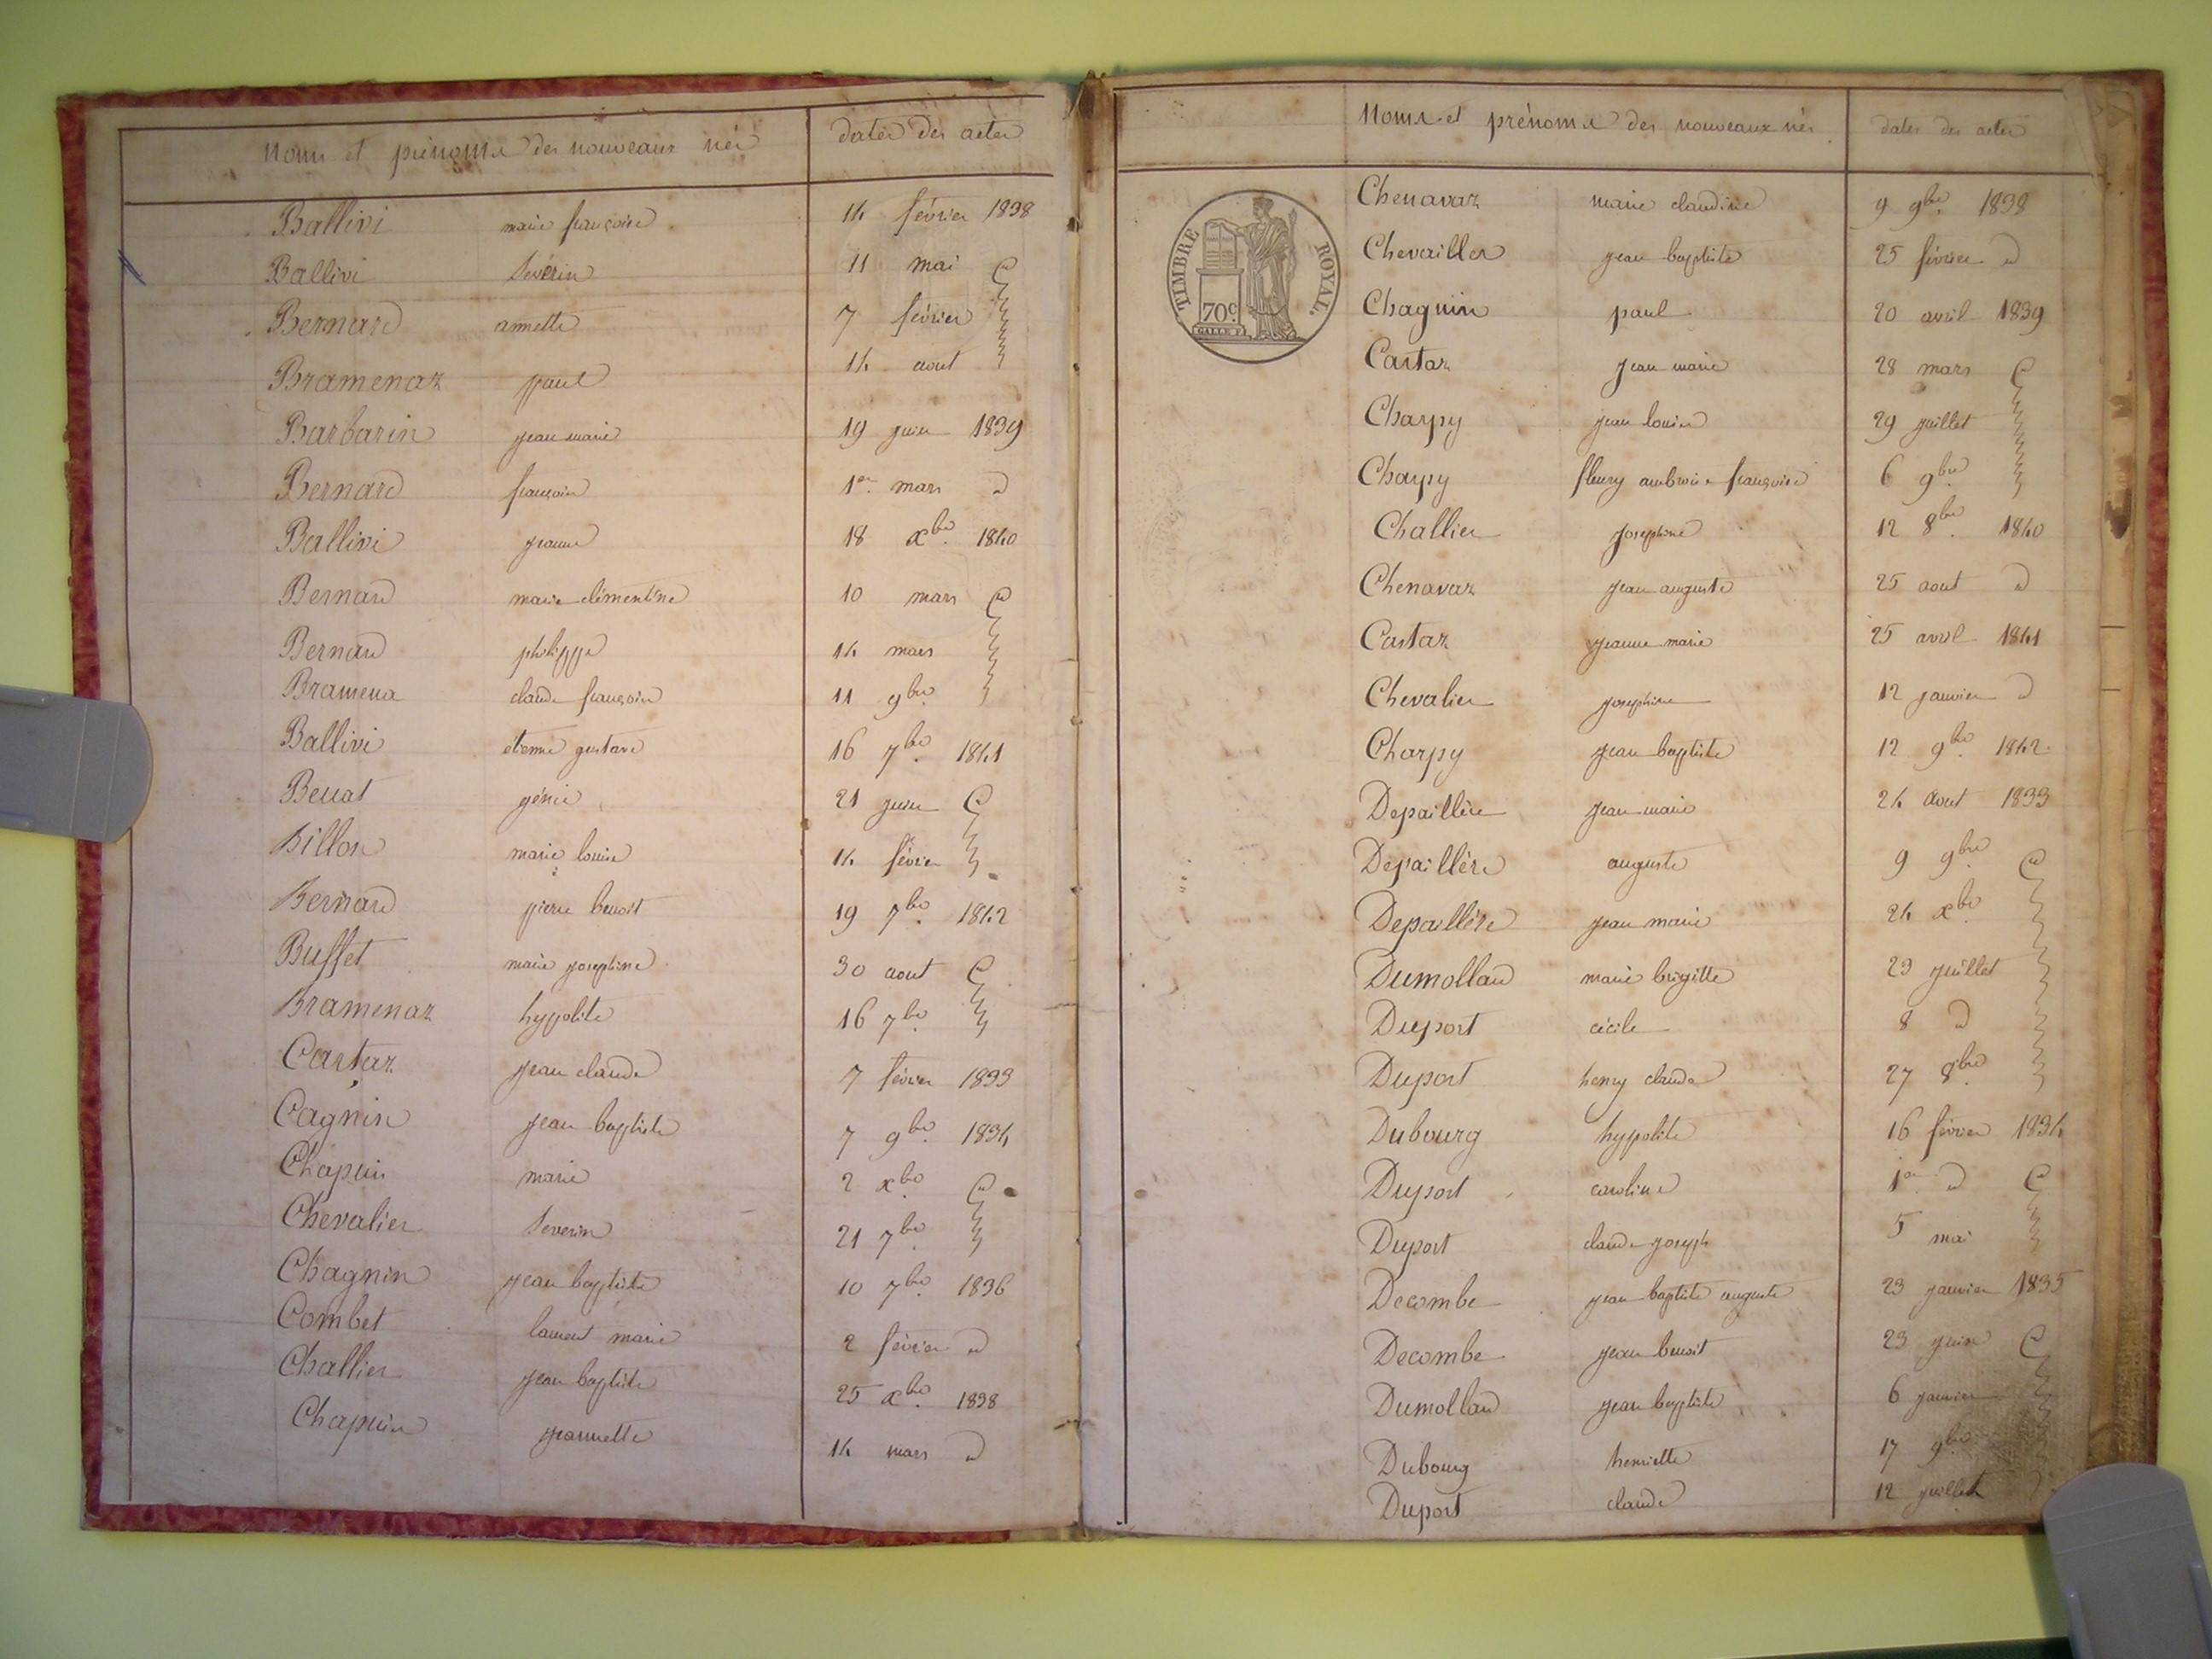 noms et prénoms des nouveaux nés dates des actes
Ballivi marie françoise 14 février 1838
Ballivi Sévérin 11 mai
Bernard annette 7 février
Bramenaz paul 14 aout
Barbarin jean marie 19 juin 1839
Bernard françois 1er mars d
Ballivi jeanne 18 xbre 1840
Bernard marie clémentine 10 mars
Bernard philippe 14 mars
Bramena claude françois 11 9bre
Ballivi étienne gustave 16 7bre 1841
Beuat génie 21 juin
Billon marie louise 14 février
Bernard pierre benoit 19 7bre 1842
Buffet marie josephine 30 aout
Bramenaz hypolite 16 7bre
Castaz jean claude 7 février 1833
Cagnin jean baptiste 7 9bre 1834
Chapuis marie 2 xbre
Chevalier Severin 21 7bre
Chagnin jean baptiste 10 7bre 1836
Combet laurent marie 2 février d
Challier jean baptiste 25 xbre 1838
Chapuis jeannette 14 mars d
Noms et prénoms des nouveaux nés dates des actes
TIMBRE ROYAL.
70c.
Chenavaz marie claudine 9 9bre 1838
Chevailler jean baptiste 25 février d
Chagnin paul 20 avril 1839
Castaz jean marie 28 mars
Charpy jean louis 29 juillet
Charpy fleury ambroise françoise 6 9bre
Challier josephine 12 8bre 1840
Chenavaz jean auguste 25 aout d
Castaz jeanne marie 25 avril 1841
Chevalier josephine 12 janvier d
Charpy jean baptiste 12 9bre 1842
Depaillère jean marie 24 aout 1833
Depaillère auguste 9 9bre
Depaillère jean marie 24 xbre
Dumollard marie brigitte 23 juillet
Duport cécile 8 d
Duport henry claude 27 8bre
Dubourg hypolite 16 février 1834
Duport caroline 1er d
Duport claude joseph 5 mai
Decombe jean baptiste auguste 23 janvier 1835
Decombe jean benoit 23 juin
Dumollard jean baptiste 6 janvier
Dubourg henriette 17 9bre
Duport claude 12 juillet